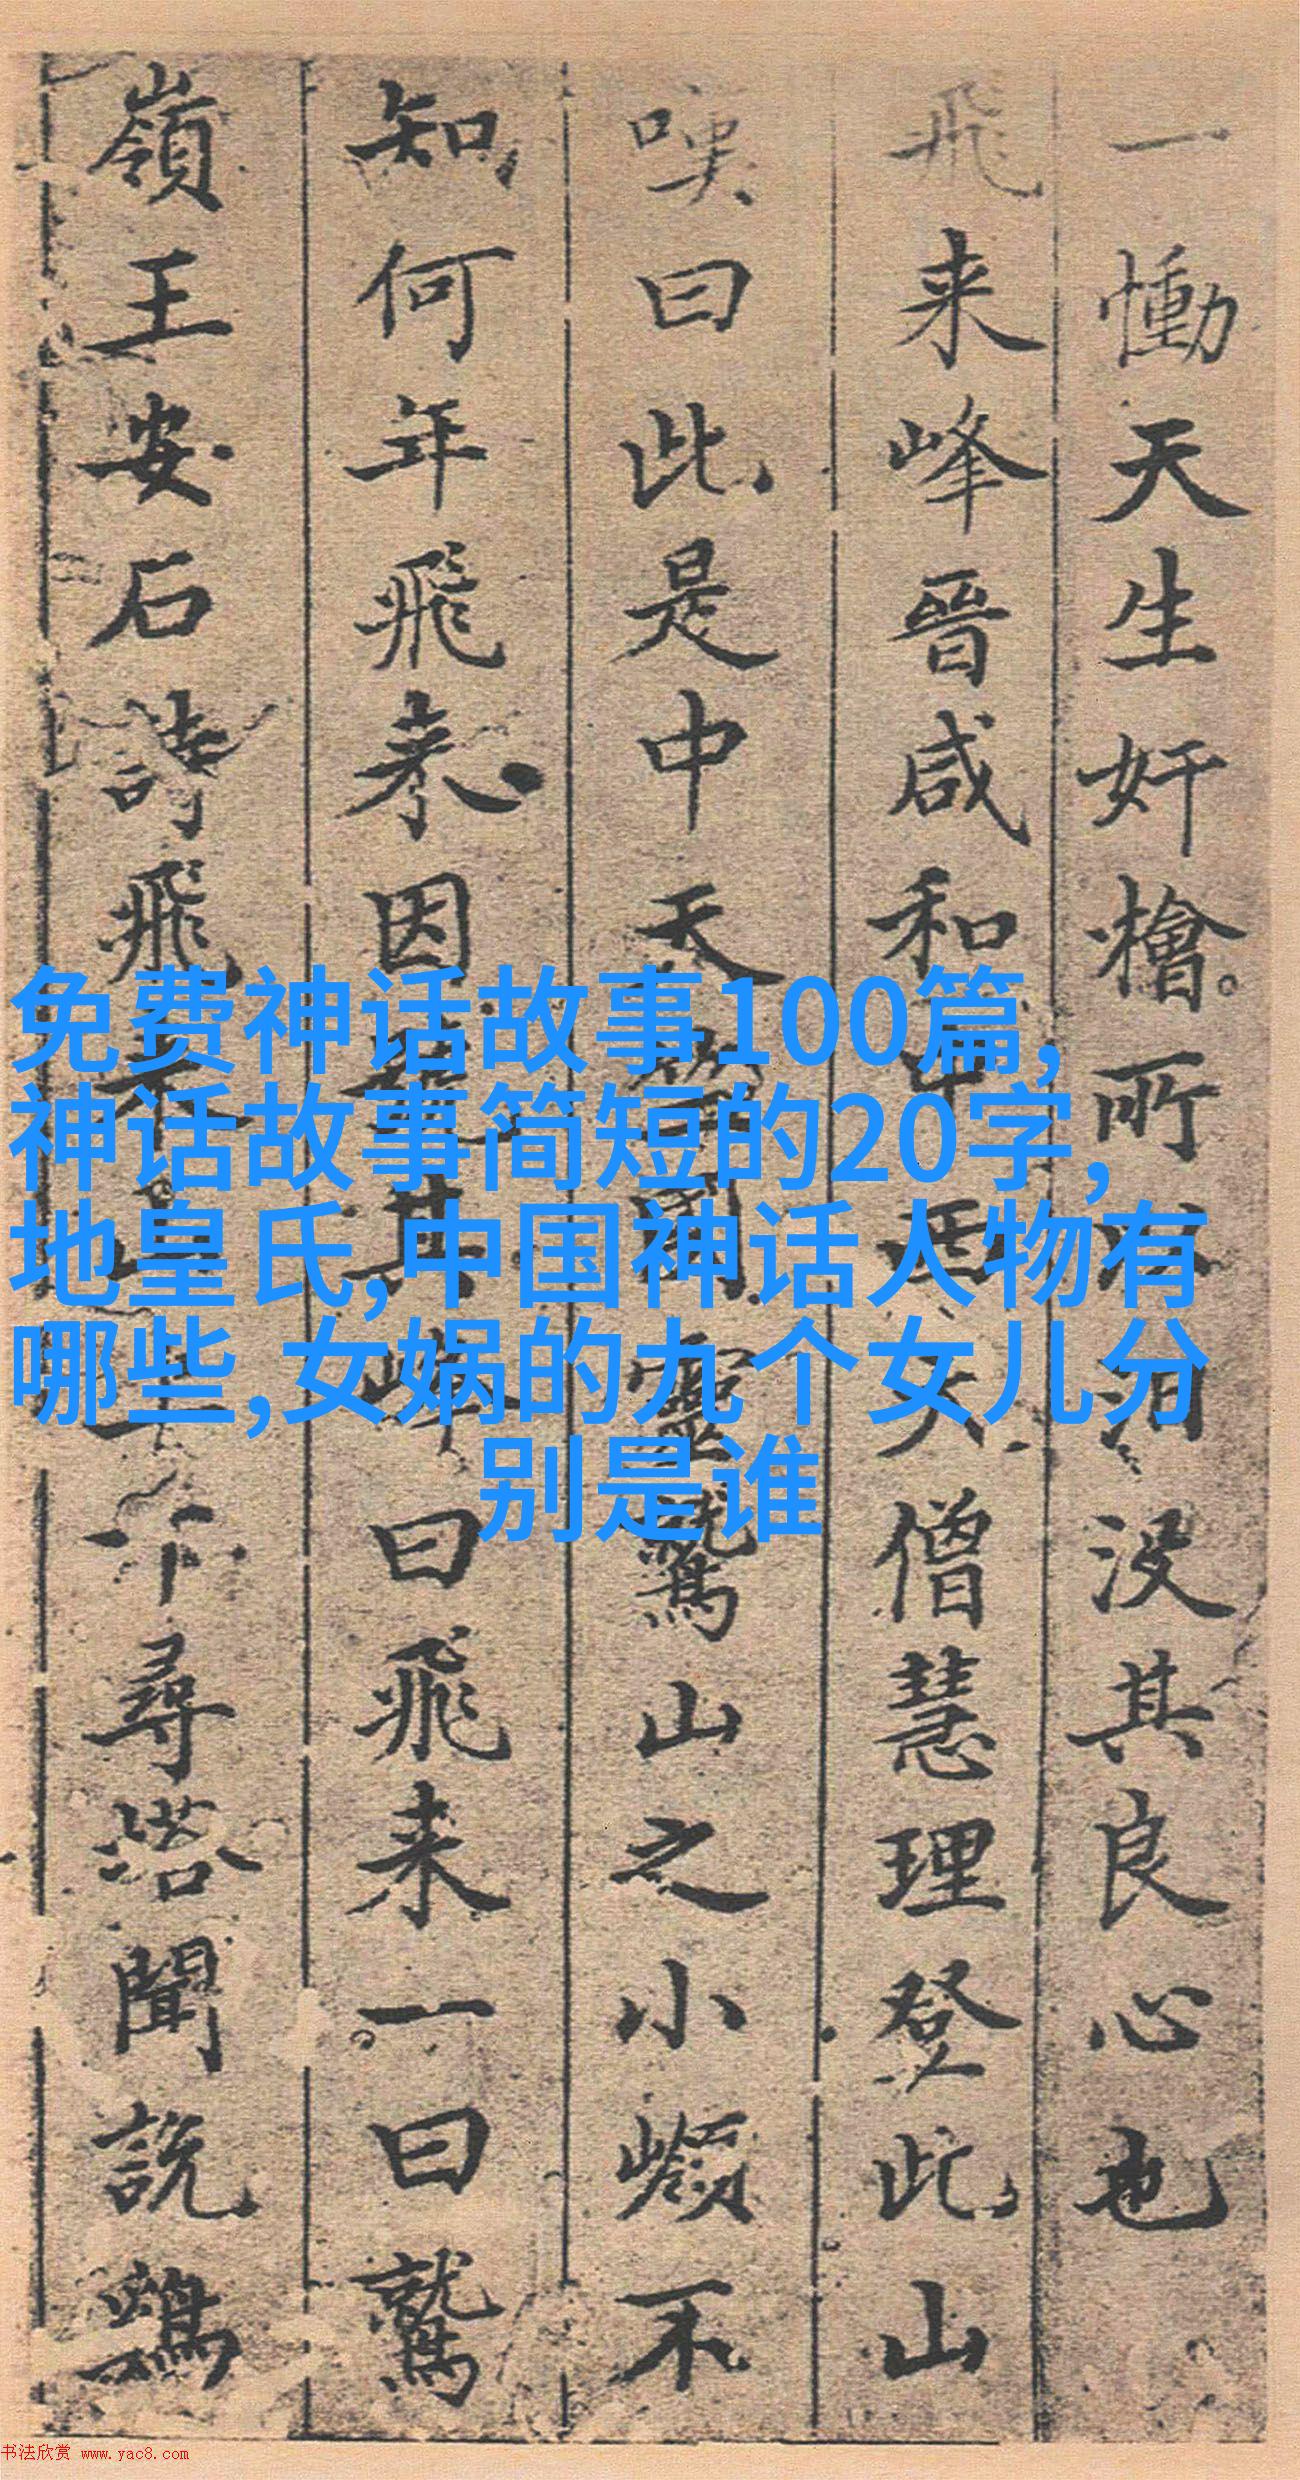 一慟天生奸檜所以汩没其良心也
飛来峰晉咸和中西天僧慧理登此山
嘆曰此是中天竺國靈鷲山之小嶺不
知何年飛来因號其峰曰飛来一曰鷲
嶺王安石詩飛来山上千尋塔聞說鷄
免费神话故事100篇,
神话故事简短的20字,
地皇氏,中国神话人物有
哪些,女娲的九个女儿分
别是谁
书法欣赏 www.yac8.com